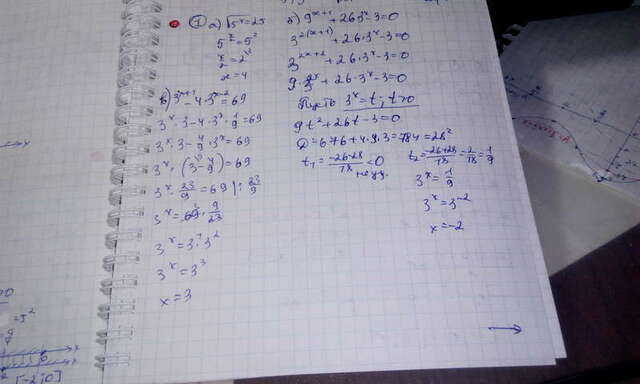 ① а) √5ˣ = 25
5^(x/2) = 5²
x/2 = 2
x = 4
б) 3ˣ⁺¹ - 4·3ˣ⁻² = 69
3ˣ·3 - 4·3ˣ·1/9 = 69
3ˣ·3 - 4/9·3ˣ = 69
3ˣ·(3 - 4/9) = 69
3ˣ·23/9 = 69 |: 23/9
3ˣ = 69·9/23
3ˣ = 3·3²
3ˣ = 3³
x = 3
9ˣ⁺¹ + 26·3ˣ - 3 = 0
3²⁽ˣ⁺¹⁾ + 26·3ˣ - 3 = 0
3²ˣ⁺² + 26·3ˣ - 3 = 0
9·3²ˣ + 26·3ˣ - 3 = 0
Пусть 3ˣ = t; t>0
9t² + 26t - 3 = 0
D = 676 + 4·9·3 = 784 = 28²
t₁ = (-26-28)/18 < 0
t₂ = (-26+28)/18 = 2/18 = 1/9
3ˣ = 1/9
3ˣ = 3⁻²
x = -2
[-2;0]